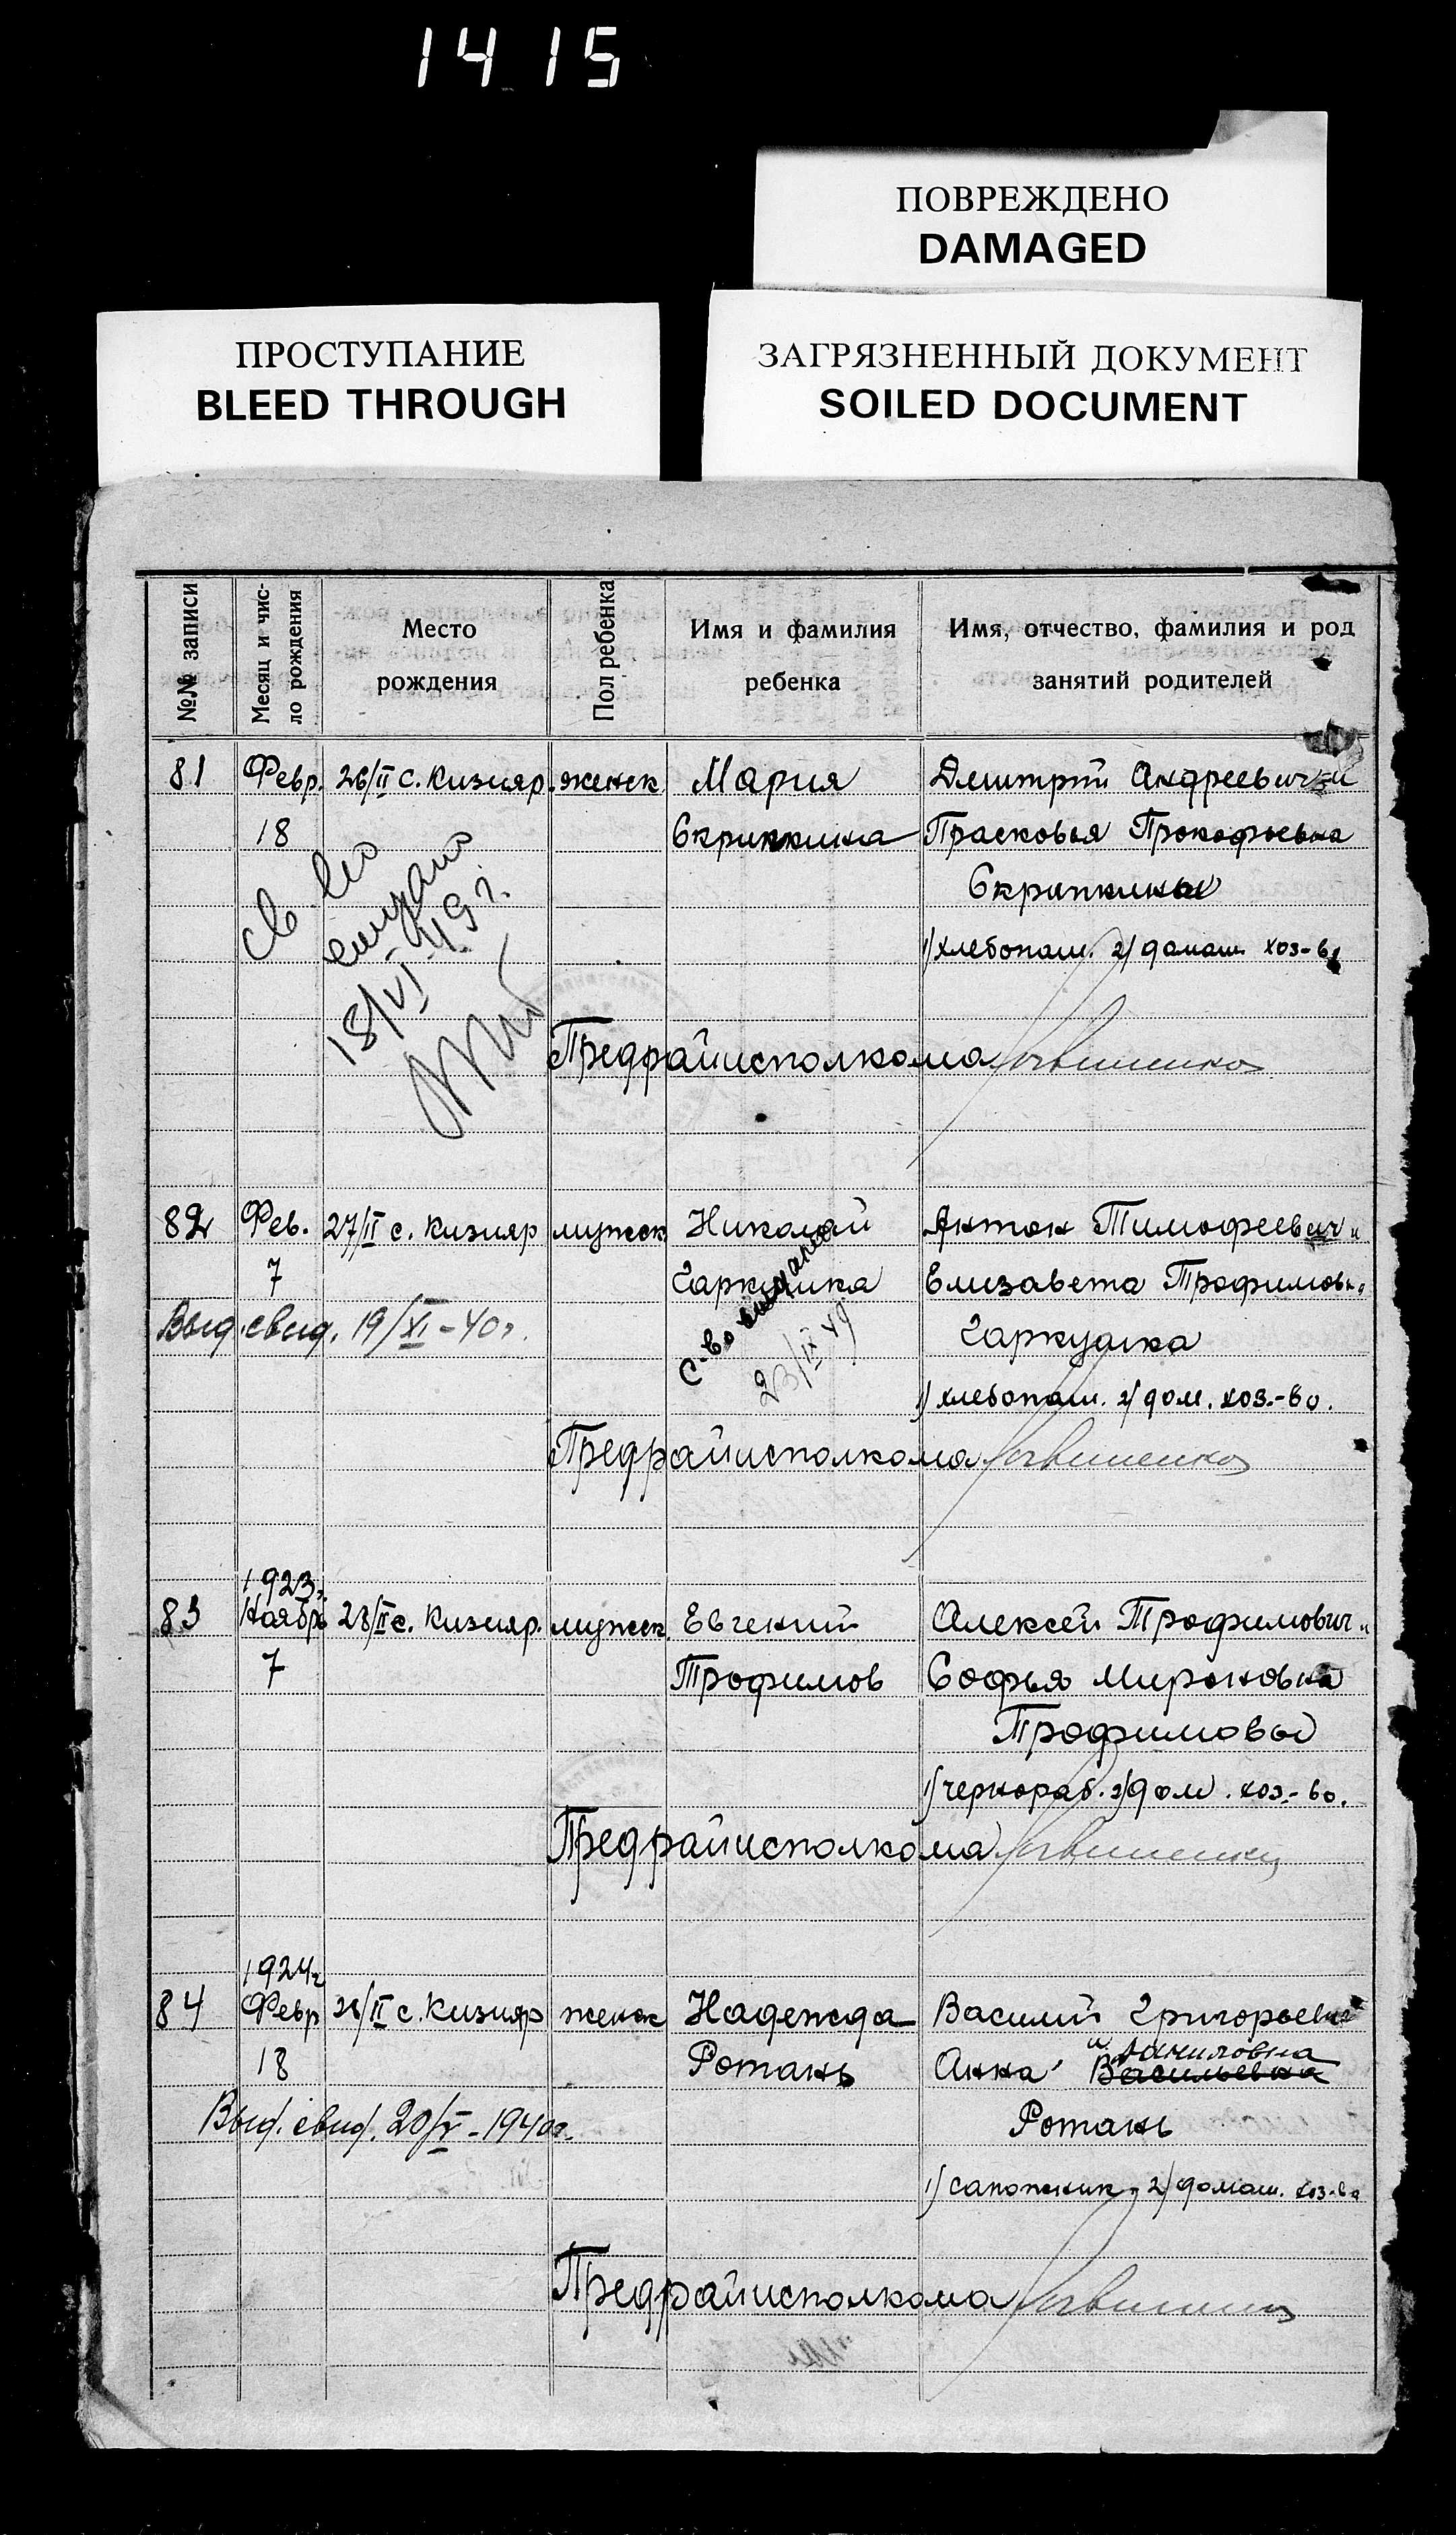 14 15
ПОВРЕЖДЕНО
DAMAGED
ПРОСТУПАНИЕ
BLEED THROUGH
ЗАГРЯЗНЕННЫЙ ДОКУМЕНТ
SOILED DOCUMENT
№№ записи
Месяц и чис-
ло рождения
Место
рождения
Пол ребенка
Имя и фамилия
ребенка
Имя, отчество, фамилия и род
занятий родителей
81 Февр. 26/II с. Кизияр. женск. Мария Дмитрий Андреевич и
18 Скрипкина Прасковья Прокофьевна
Скрипкины
1) хлебопаш. 2) домаш. хоз-во
св во
выдано
18/VI-49 г.
Предрайисполкома
82 Фев. 27/II с. Кизияр мужск. Николай Антон Тимофеевич и
7 Гаркушка Елизавета Трофимовн.
Выд. свид. 19/XI-40 г. Гаркушка
С-во выдано
23/IX 49
1) хлебопаш. 2) дом. хоз.-во.
Предрайисполкома
1923 г.
83 Ноябрь 28/II с. Кизияр. мужск. Евгений Алексей Трофимович и
7 Трофимов Софья Мироновна
Трофимовы
1) чернораб. 2) дом. хоз.-во.
Предрайисполкома
1924 г
84 Февр 28/II с. Кизияр женск Надежда Василий Григорьевич
18 Ротань Анна Васильевна
и Даниловна
Выд. свид. 20/V-1940 г. Ротань
1) сапожник, 2) домаш. хоз-во
Предрайисполкома